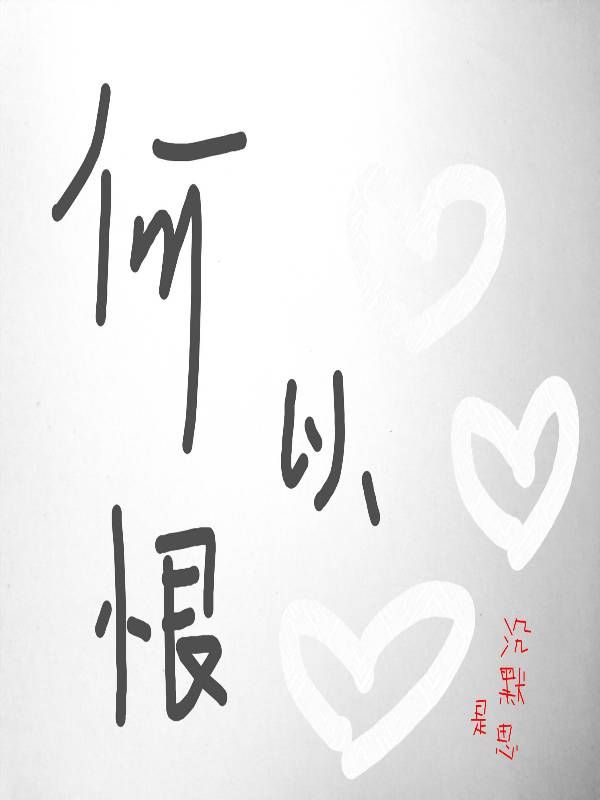 何以恨
沉默是思